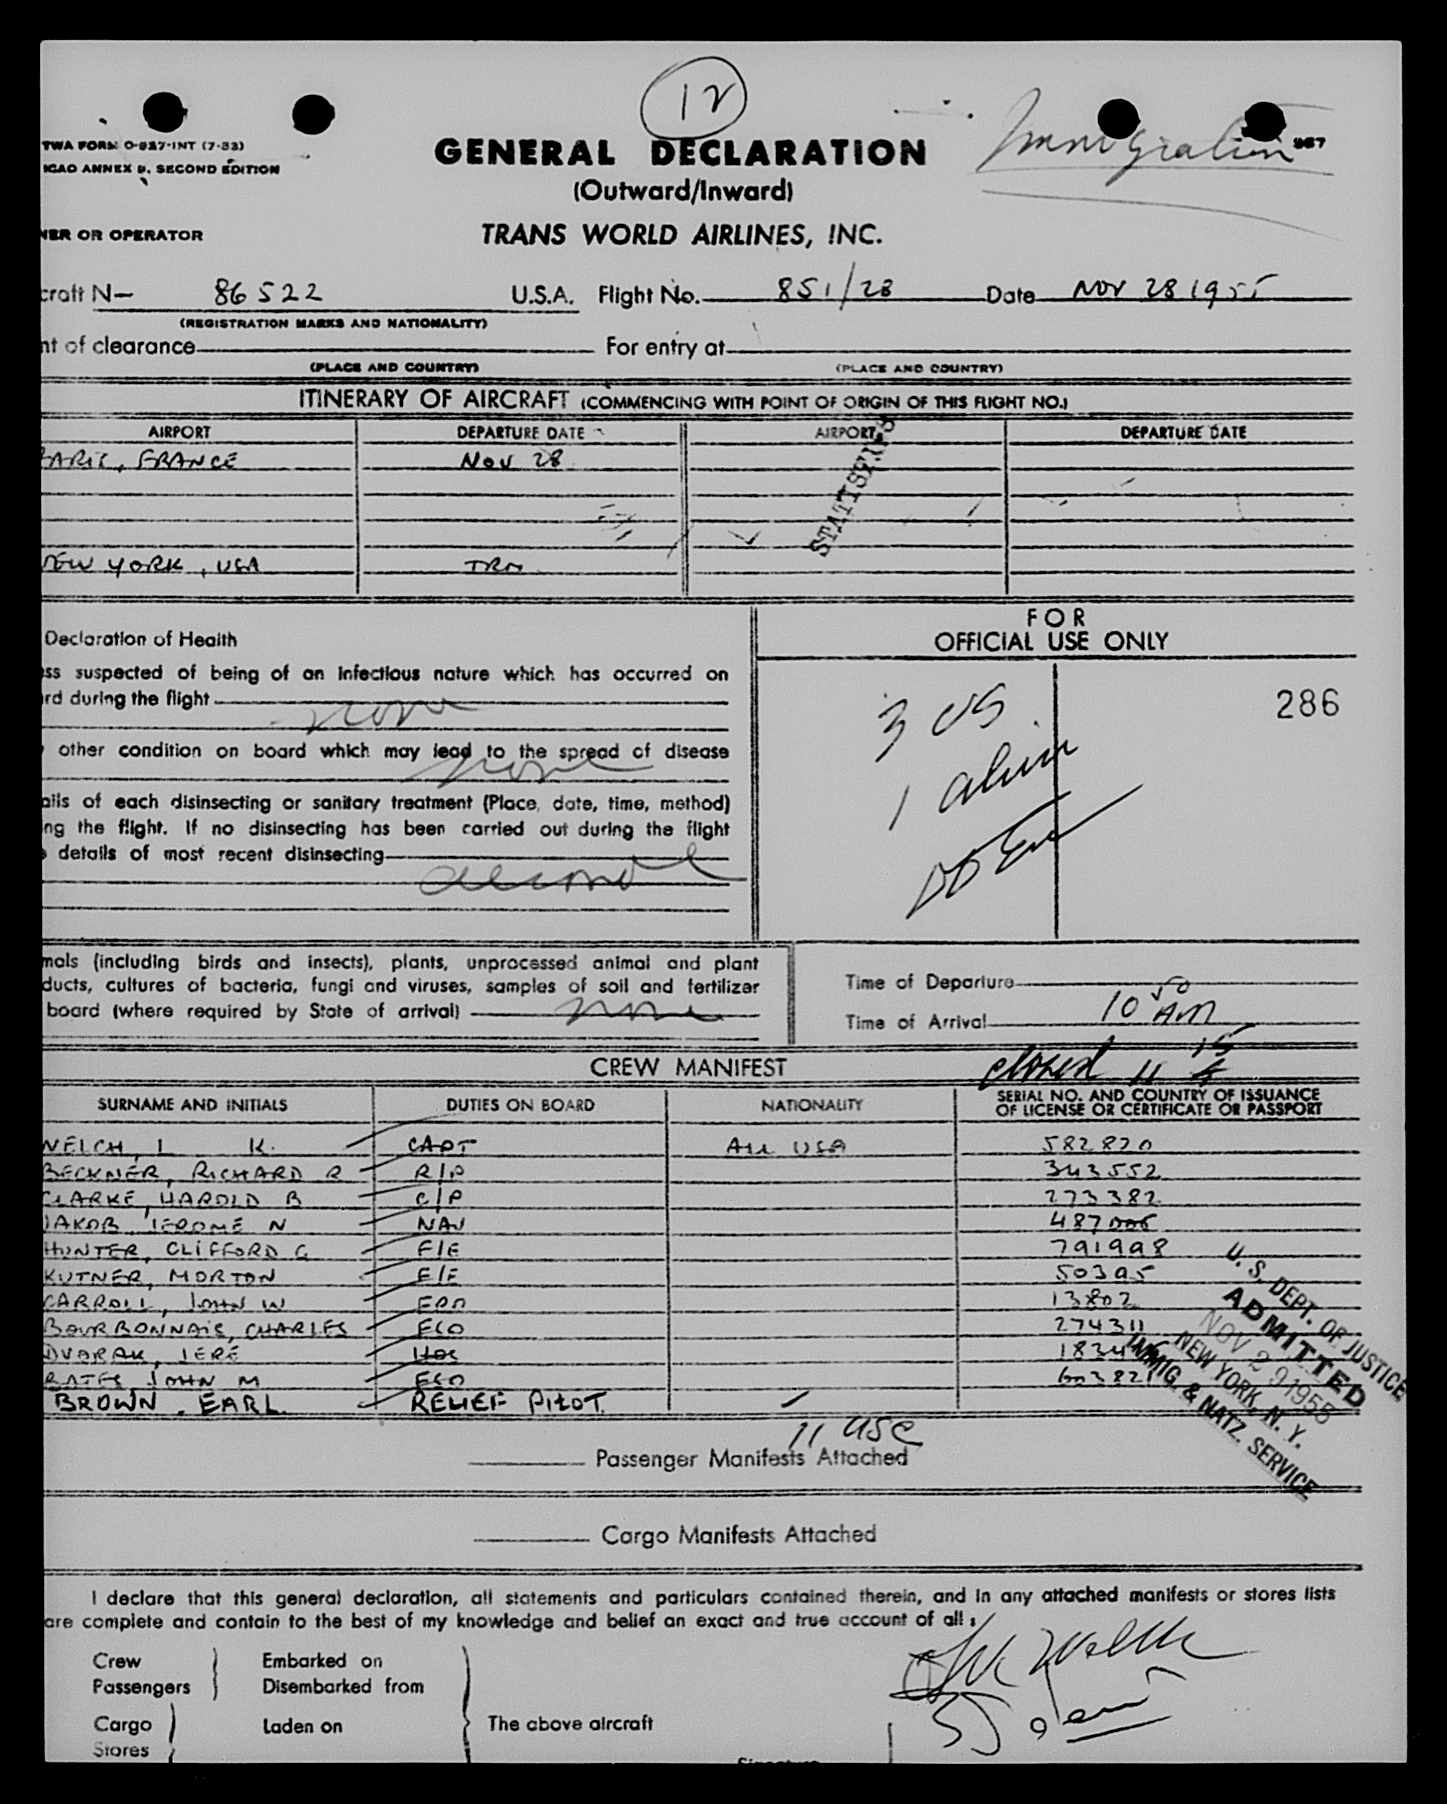 12
Immigration
TWA FORM O-927-INT (7-53)
ICAO ANNEX 9, SECOND EDITION
967
GENERAL DECLARATION
(Outward/Inward)
NER OR OPERATOR
TRANS WORLD AIRLINES, INC.
craft N— 86522 U.S.A. Flight No. 851/28 Date NOV 28 1955
(REGISTRATION MARKS AND NATIONALITY)
nt of clearance For entry at
(PLACE AND COUNTRY) (PLACE AND COUNTRY)
ITINERARY OF AIRCRAFT (COMMENCING WITH POINT OF ORIGIN OF THIS FLIGHT NO.)
AIRPORT DEPARTURE DATE AIRPORT DEPARTURE DATE
PARIS, FRANCE NOV 28
NEW YORK, USA TRM
FOR
OFFICIAL USE ONLY
Declaration of Health
ess suspected of being of an infectious nature which has occurred on
rd during the flight none
3 US
286
other condition on board which may lead to the spread of disease
none
1 alien
ails of each disinsecting or sanitary treatment (Place, date, time, method)
ng the flight. If no disinsecting has been carried out during the flight
details of most recent disinsecting
mals (including birds and insects), plants, unprocessed animal and plant
ducts, cultures of bacteria, fungi and viruses, samples of soil and fertilizer
board (where required by State of arrival) none
Time of Departure
Time of Arrival 10 50 AM
closed 11 15
CREW MANIFEST
SURNAME AND INITIALS DUTIES ON BOARD NATIONALITY SERIAL NO. AND COUNTRY OF ISSUANCE
OF LICENSE OR CERTIFICATE OR PASSPORT
WELCH, L K. CAPT ALL USA 582820
BECKNER, RICHARD R R/P 343552
CLARKE, HAROLD B C/P 273382
JAKOB, JEROME N NAV 487006
HUNTER, CLIFFORD C F/E 791998
KUTNER, MORTON F/E 50395
CARROLL, JOHN W 13802
BOURBONNAIS, CHARLES 274311
DVORAK, JERE HOS
BATES JOHN M
BROWN, EARL RELIEF PILOT
U. S. DEPT. OF JUSTICE
ADMITTED
NOV 29 1955
NEW YORK, N. Y.
IMMIG. & NATZ. SERVICE
11 USC
Passenger Manifests Attached
Cargo Manifests Attached
I declare that this general declaration, all statements and particulars contained therein, and in any attached manifests or stores lists
are complete and contain to the best of my knowledge and belief an exact and true account of all:
Crew Embarked on
Passengers Disembarked from
Cargo Laden on The above aircraft
Stores
Signature